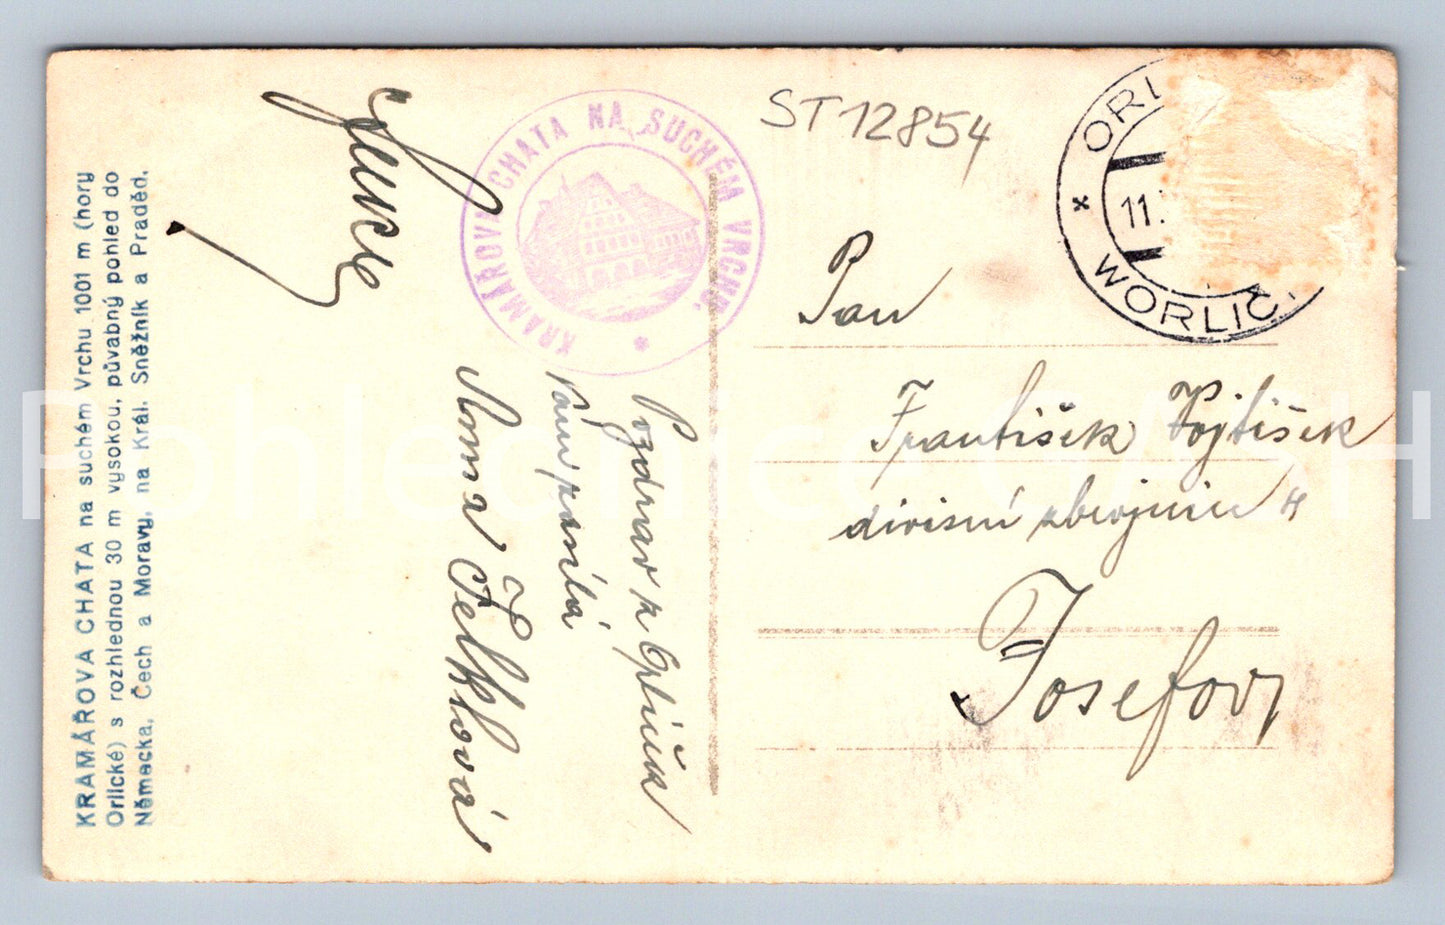 KRAMÁŘOVA CHATA na suchém Vrchu 1001 m (hory
Orlické) s rozhlednou 30 m vysokou, půvabný pohled do
Německa, Čech a Moravy, na Král. Sněžník a Praděd.
KRAMÁŘOVA CHATA NA SUCHÉM VRCHU.
Pozdrav z Orliček
Vám zasílá
Čelková
ST12854
ORLI
11.
WORLIČ
Pan
František Vojtíšek
divisní zbrojnice 4
Josefov
Pohlednice